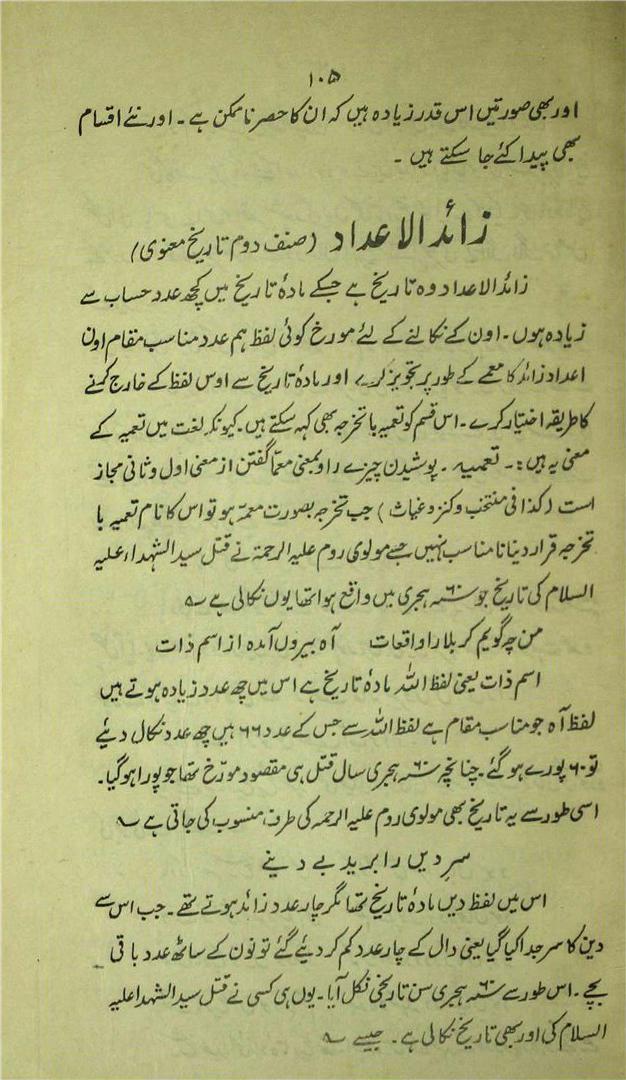 ۱۰۵
اور بھی صورتیں اس قدر زیادہ ہیں کہ ان کا حصر ناممکن ہے۔ اور نئے اقسام
بھی پیدا کئے جا سکتے ہیں ۔
زائد الاعداد (صنف دوم تاریخ معنوی)
زائد الاعداد وہ تاریخ ہے جسکے مادۂ تاریخ میں کچھ عدد حساب سے
زیادہ ہوں۔ اون کے نکالنے کے لئے مورخ کوئی لفظ ہم عدد مناسب مقام اون
اعداد زائد کا معمے کے طور پر تجویز کرے اور مادۂ تاریخ سے اوس لفظ کے خارج کرنے
کا طریقہ اختیار کرے۔ اس قسم کو تعمیہ با تخرجہ بھی کہہ سکتے ہیں۔ کیونکہ لغت میں تعمیہ کے
معنی یہ ہیں:۔ تعمیہ ۔ پوشیدن چیزے را و بمعنی معمّا گفتن از معنی اول و ثانی مجاز
است (کذا فی منتخب و کنز و غیاث) جب تخرجہ بصورت معمہ ہو تو اس کا نام تعمیہ با
تخرجہ قرار دینا نامناسب نہیں جیسے مولوی روم علیہ الرحمۃ نے قتل سید الشہداء علیہ
السلام کی تاریخ جو ۶۰؁ ہجری میں واقع ہوا تھا یوں نکالی ہے ؎
من چہ گویم کربلا را واقعات آہ بیروں آمدہ از اسم ذات
اسم ذات یعنی لفظ اللہ مادۂ تاریخ ہے اس میں چھ عدد زیادہ ہوتے ہیں
لفظ آہ جو مناسب مقام ہے لفظ اللہ سے جس کے عدد ۶۶ ہیں چھ عدد نکال دیئے
تو ۶۰ پورے ہو گئے۔ چنانچہ ۶۰؁ ہجری سال قتل ہی مقصود مورّخ تھا جو پورا ہو گیا۔
اسی طور سے یہ تاریخ بھی مولوی روم علیہ الرحمہ کی طرف منسوب کی جاتی ہے ؎
سرِ دیں را برید بے دینے
اس میں لفظ دیں مادۂ تاریخ تھا مگر چار عدد زائد ہوتے تھے۔ جب اس سے
دین کا سر جدا کیا گیا یعنی دال کے چار عدد کم کر دیئے گئے تو نون کے ساٹھ عدد باقی
بچے۔ اس طور سے ۶۰؁ ہجری سن تاریخی نکل آیا۔ یوں ہی کسی نے قتل سید الشہدا علیہ
السلام کی اور بھی تاریخ نکالی ہے۔ جیسے ؎